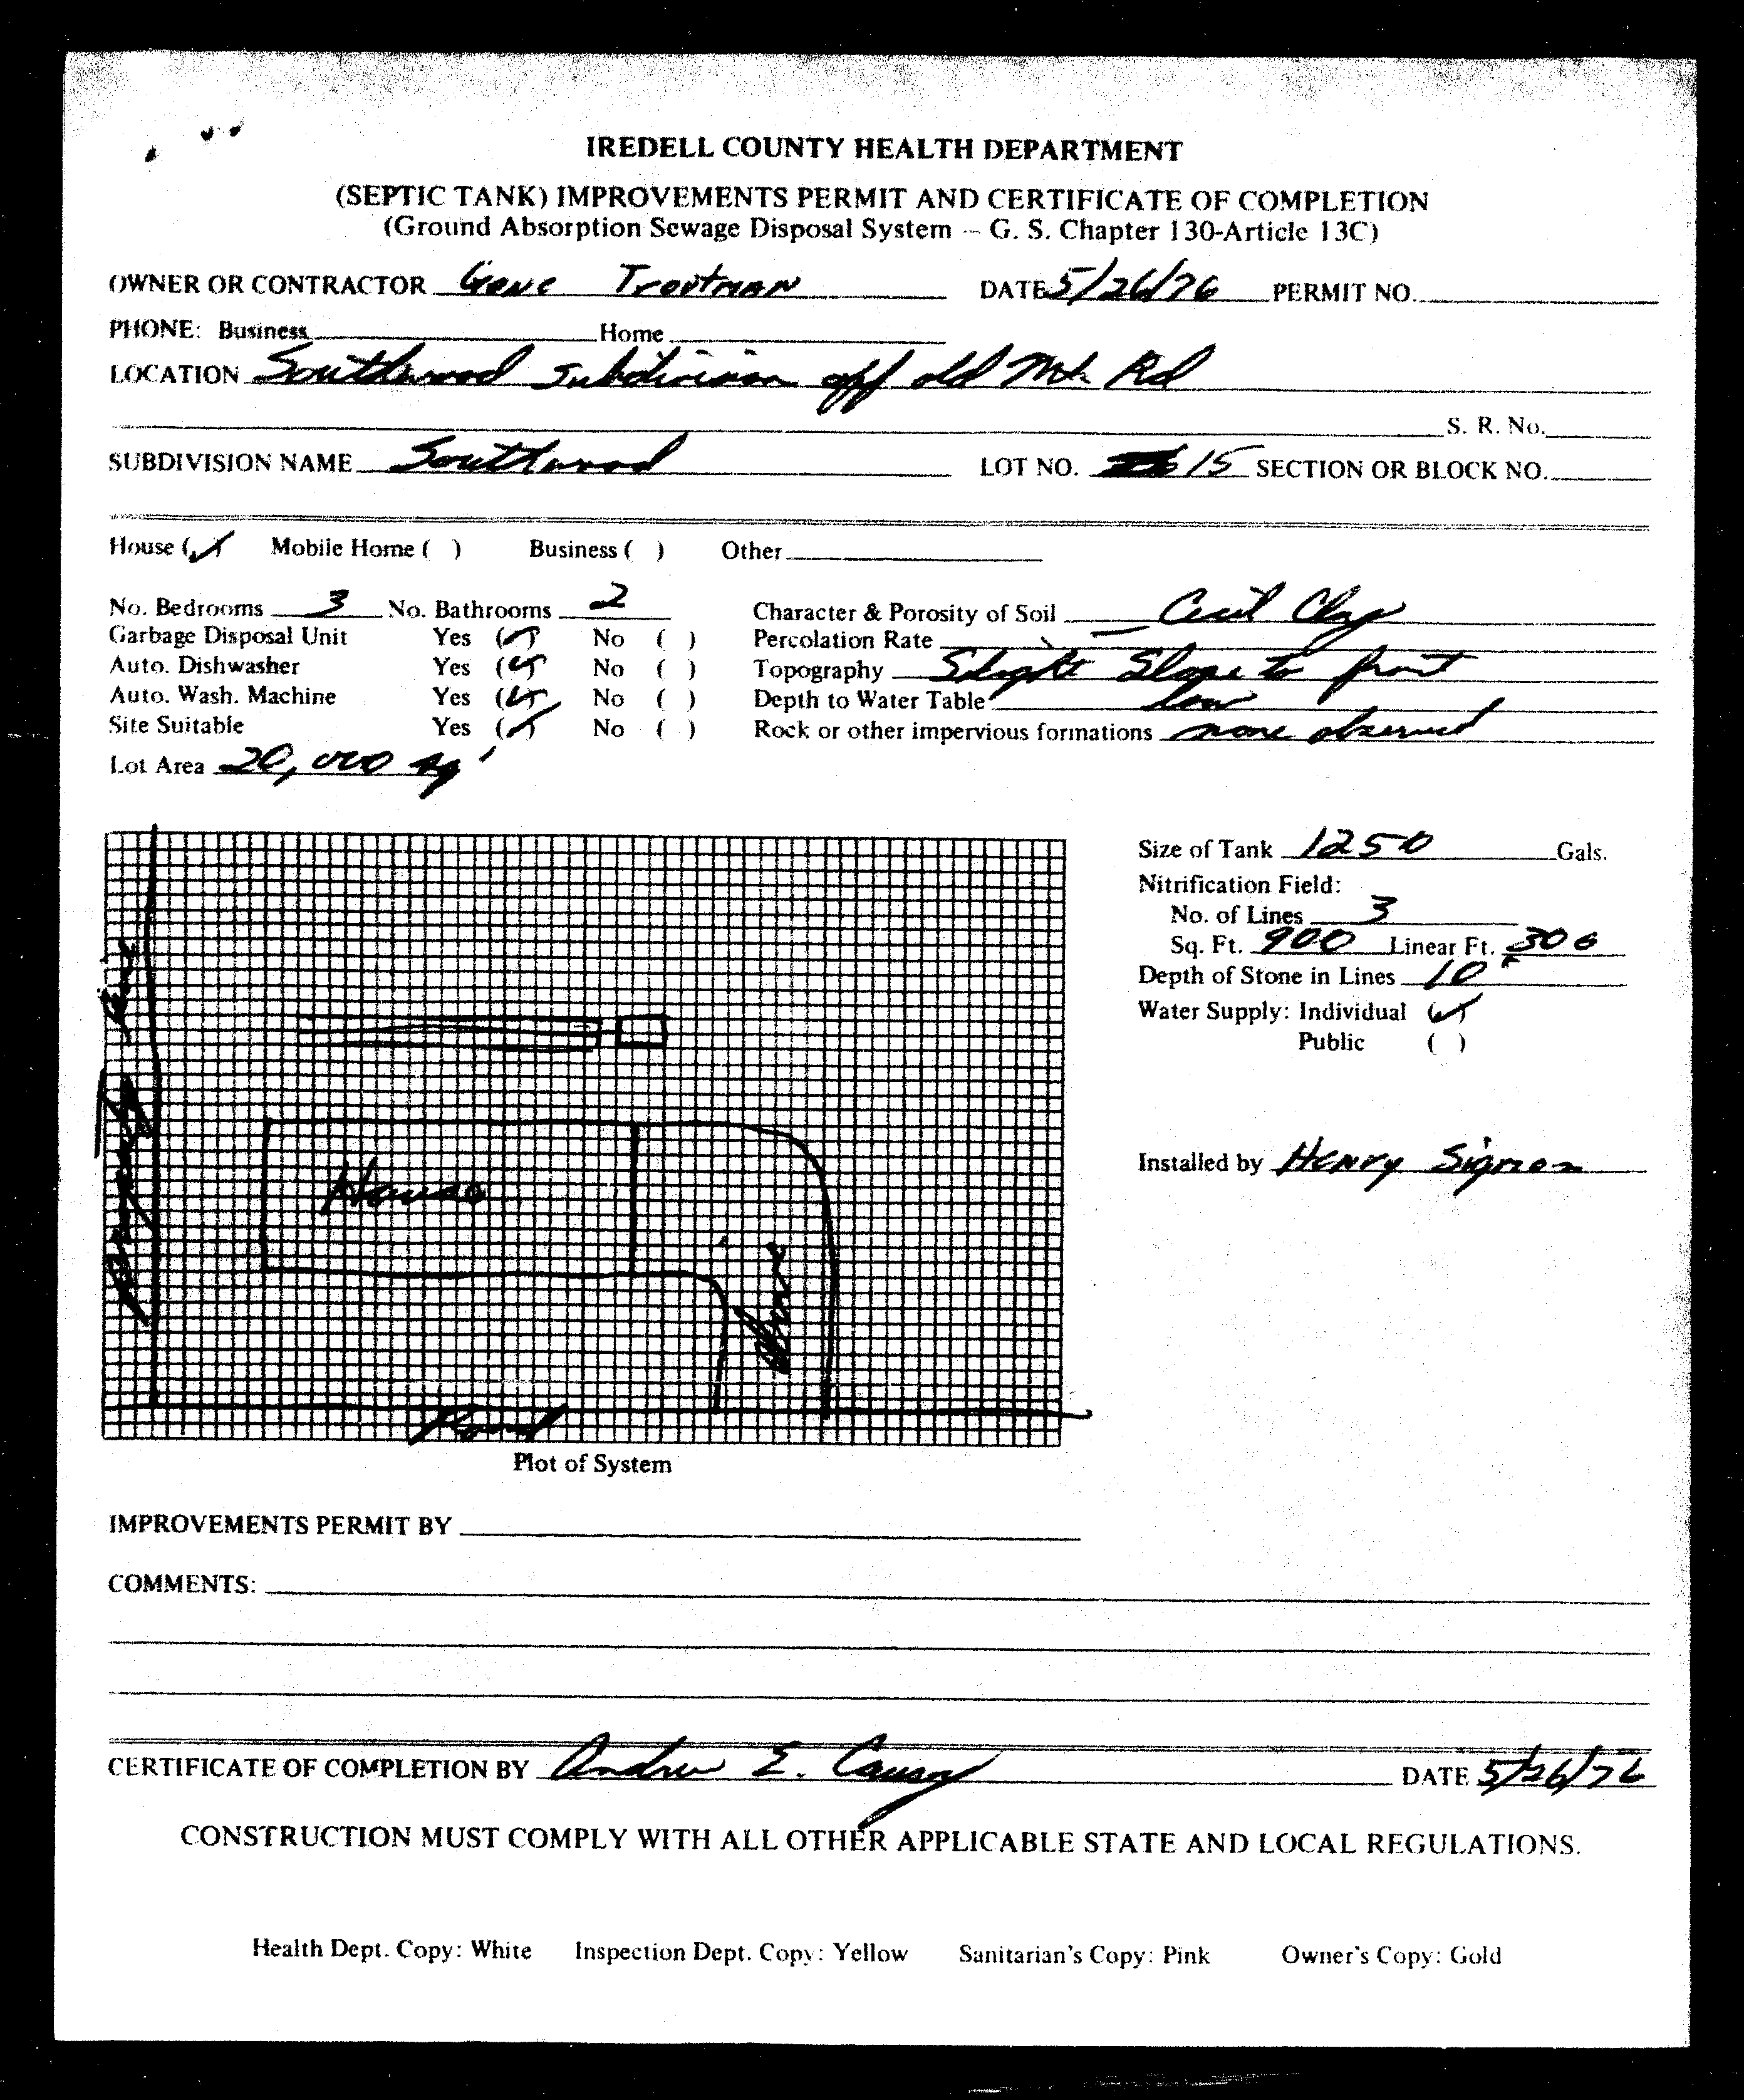 IREDELL COUNTY HEALTH DEPARTMENT
(SEPTIC TANK) IMPROVEMENTS PERMIT AND CERTIFICATE OF COMPLETION
(Ground Absorption Sewage Disposal System -- G. S. Chapter 130-Article 13C)
OWNER OR CONTRACTOR Gene Troutman DATE 5/26/76 PERMIT NO.
PHONE: Business Home
LOCATION Southwood Subdivision off old Mt. Rd
S. R. No.
SUBDIVISION NAME Southwood LOT NO. 15 SECTION OR BLOCK NO.
House (✓) Mobile Home ( ) Business ( ) Other
No. Bedrooms 3 No. Bathrooms 2 Character & Porosity of Soil Cecil Clay
Garbage Disposal Unit Yes (✓) No ( ) Percolation Rate
Auto. Dishwasher Yes (✓) No ( ) Topography Slight Slope to front
Auto. Wash. Machine Yes (✓) No ( ) Depth to Water Table low
Site Suitable Yes (✓) No ( ) Rock or other impervious formations none observed
Lot Area 20,000 sq '
Size of Tank 1250 Gals.
Nitrification Field:
No. of Lines 3
Sq. Ft. 900 Linear Ft. 300
Depth of Stone in Lines 10"
Water Supply: Individual (✓)
Public ( )
Installed by Henry Sigmon
House
Drive
Road
Plot of System
IMPROVEMENTS PERMIT BY
COMMENTS:
CERTIFICATE OF COMPLETION BY Andrew E. Causey DATE 5/26/76
CONSTRUCTION MUST COMPLY WITH ALL OTHER APPLICABLE STATE AND LOCAL REGULATIONS.
Health Dept. Copy: White Inspection Dept. Copy: Yellow Sanitarian's Copy: Pink Owner's Copy: Gold